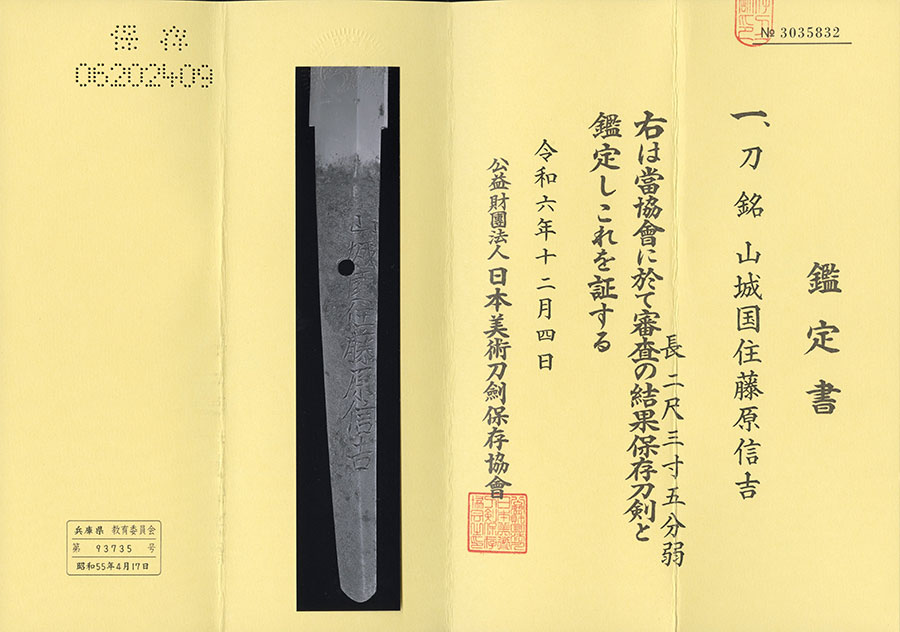 № 3035832
鑑定書
一、刀 銘 山城国住藤原信吉
長二尺三寸五分弱
右は當協會に於て審査の結果保存刀剣と
鑑定しこれを証する
令和六年十二月四日
公益財團法人 日本美術刀劍保存協會
山城國住藤原信吉
保存
06202409
兵庫県 教育委員会
第 93735 号
昭和55年4月17日